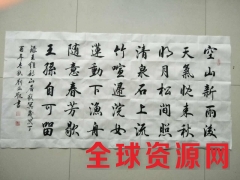 空山新雨後
天氣晚来秋
明月松間照
清泉石上流
竹喧歸浣女
蓮動下漁舟
隨意春芳歇
王孫自可留
全球资源网